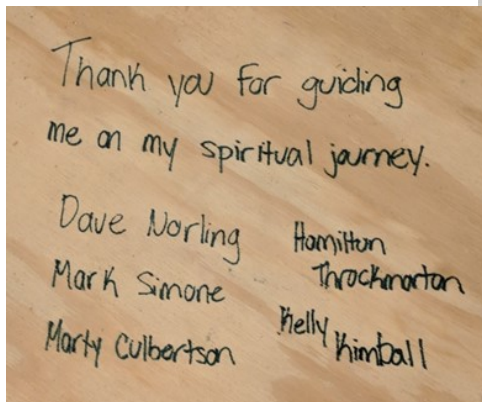 Thank you for guiding
me on my spiritual journey.
Dave Norling
Mark Simone
Marty Culbertson
Hamilton
Throckmorton
Kelly
Kimball